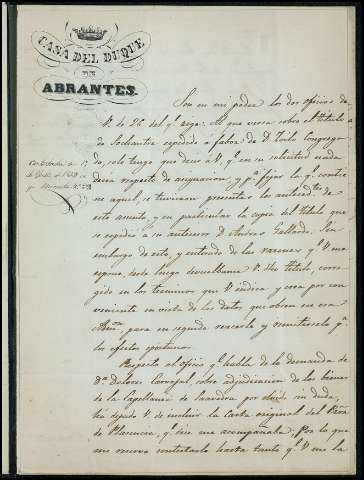 CASA DEL DUQUE
DE
ABRANTES.
Son en mi poder los dos oficios de
V. de 26 del qe. rige. El que versa sobre el titulo
de Sochantre espedido a fabor de D. Congrega
do, solo tengo que decir á V. qe. en su solicitud nada
decia respecto de asignacion, y pa. fijar la qe. contie
ne aquel, se tuvieron presentes los antecedtes. de
este asunto, y en particular la copia del titulo que
se espidió a su antecesor D. Andres Gallardo. Sin
embargo de esto, y enterado de las razones qe. V. me
espone, desde luego debuelbame V. dho titulo, corre
gido en los terminos que V. indica y crea por con
veniente en vista de los datos, que obren en esa
Admon, para en seguida y remitirselo pa.
los efectos oportunos.
Respecto al oficio qe. habla de la demanda de
Da. Dolores Carvajal, sobre adjudicacion de los bienes
de la Capellania de Saavedra por olvido sin duda,
ha dejado V. de incluir la Carta original del
de Plasencia, qe. dice me acompañaba. Por lo que
me reservo contestarle hasta tanto qe. V. me la